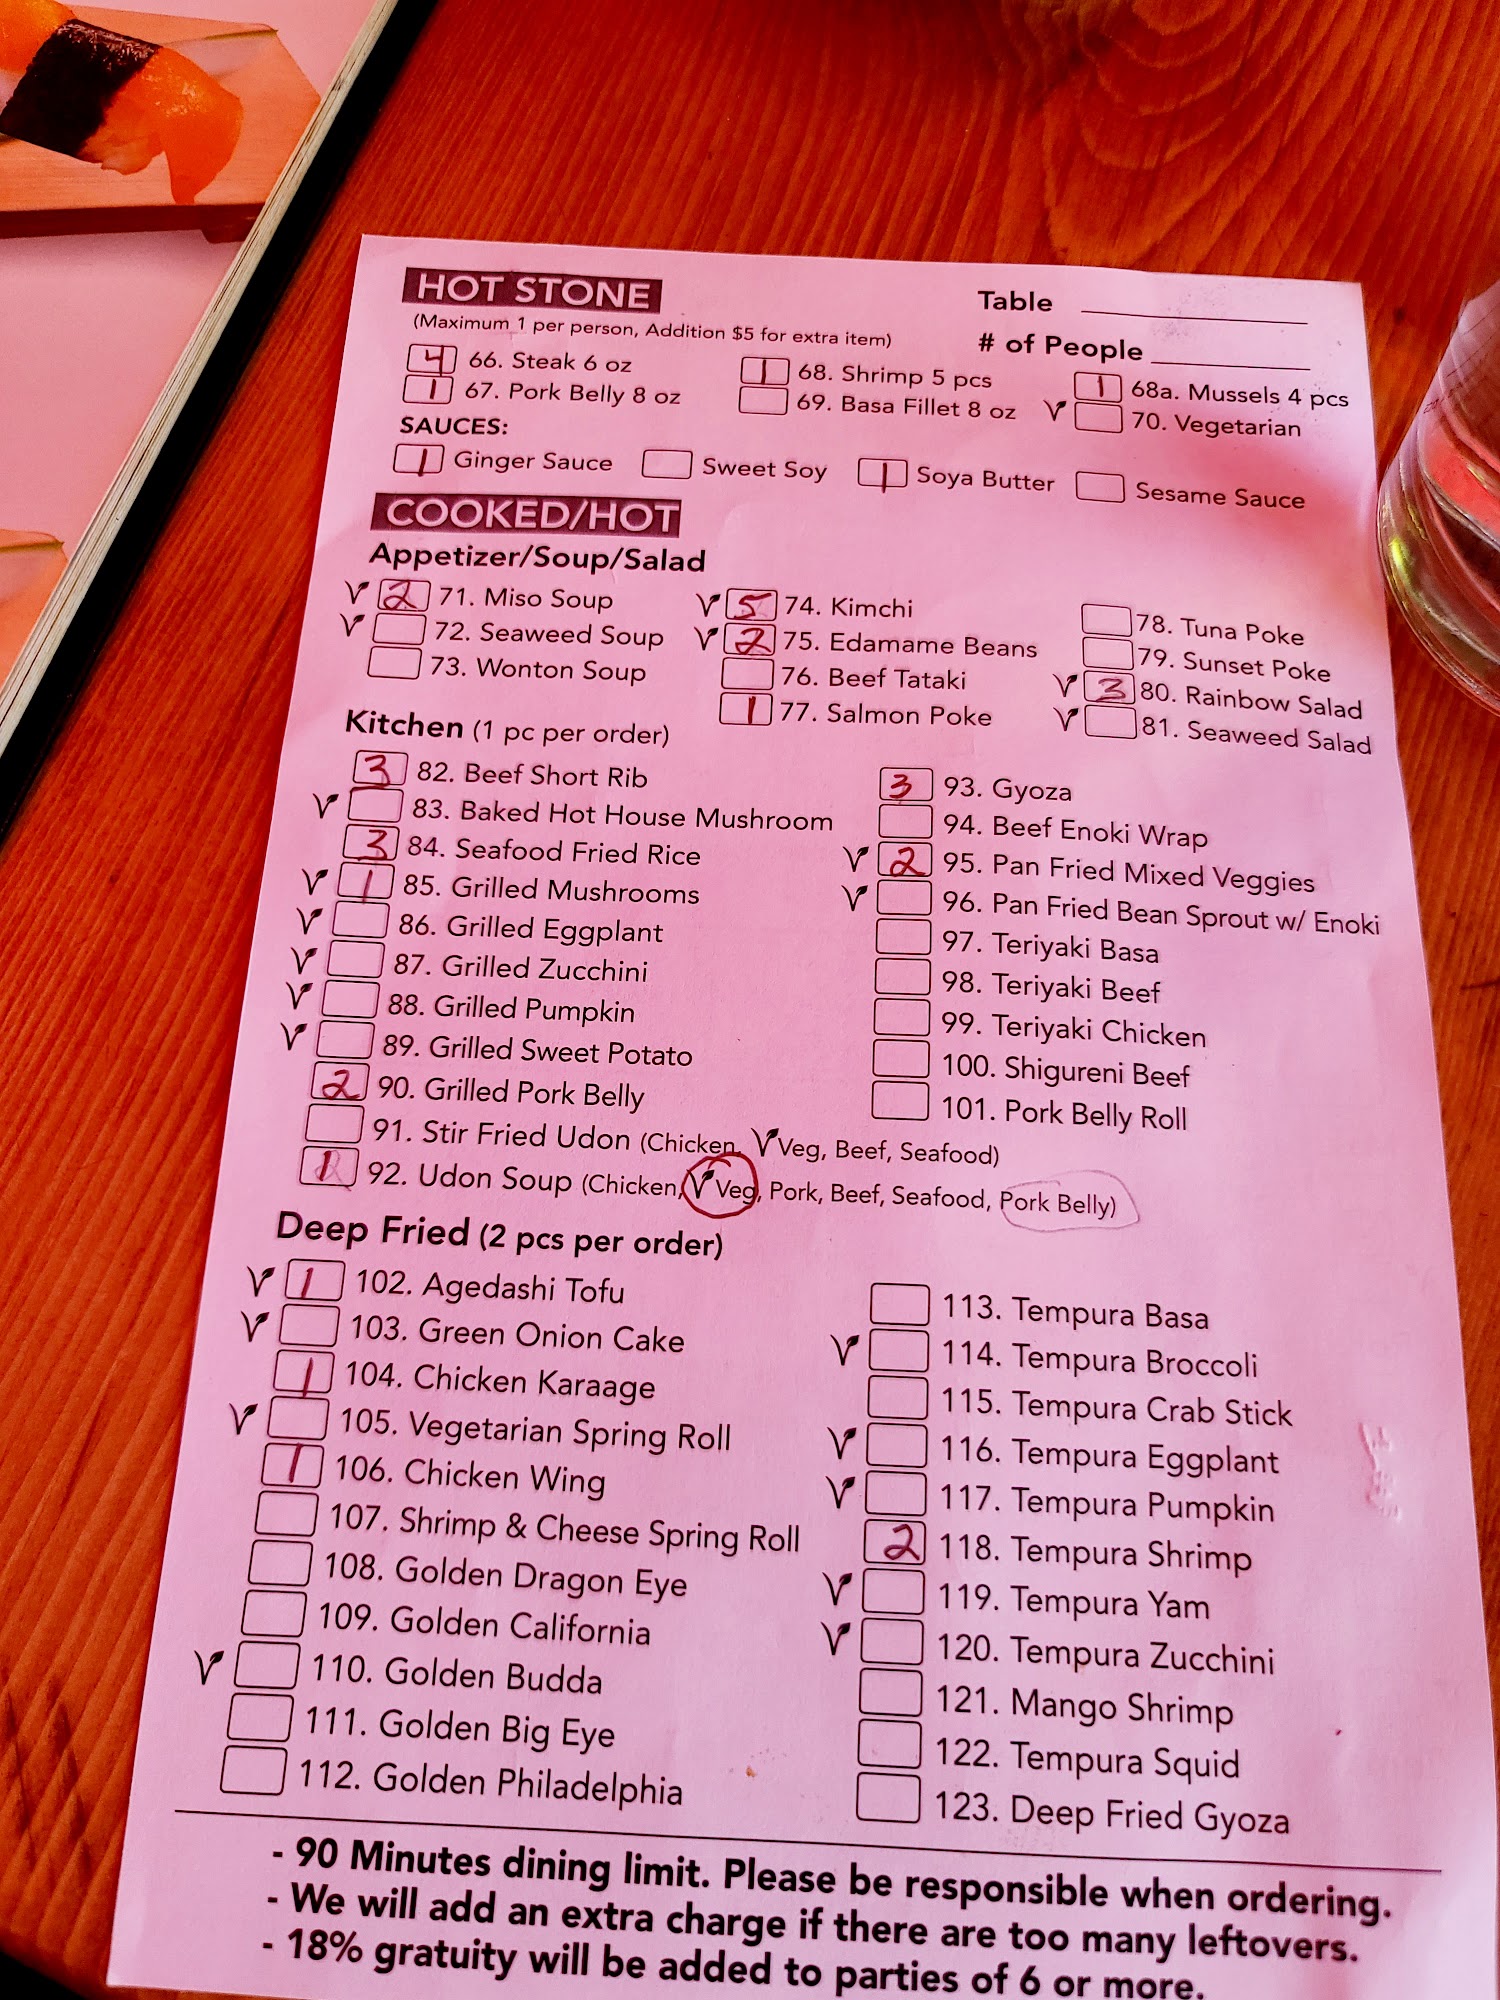 HOT STONE
Table
(Maximum 1 per person, Addition $5 for extra item)
# of People
4 66. Steak 6 oz
1 68. Shrimp 5 pcs
1 68a. Mussels 4 pcs
1 67. Pork Belly 8 oz
69. Basa Fillet 8 oz
70. Vegetarian
SAUCES:
1 Ginger Sauce
Sweet Soy
1 Soya Butter
Sesame Sauce
COOKED/HOT
Appetizer/Soup/Salad
2 71. Miso Soup
72. Seaweed Soup
73. Wonton Soup
5 74. Kimchi
2 75. Edamame Beans
76. Beef Tataki
1 77. Salmon Poke
78. Tuna Poke
79. Sunset Poke
3 80. Rainbow Salad
81. Seaweed Salad
Kitchen (1 pc per order)
3 82. Beef Short Rib
83. Baked Hot House Mushroom
3 84. Seafood Fried Rice
1 85. Grilled Mushrooms
86. Grilled Eggplant
87. Grilled Zucchini
88. Grilled Pumpkin
89. Grilled Sweet Potato
2 90. Grilled Pork Belly
91. Stir Fried Udon (Chicken, Veg, Beef, Seafood)
1 92. Udon Soup (Chicken, Veg, Pork, Beef, Seafood, Pork Belly)
3 93. Gyoza
94. Beef Enoki Wrap
2 95. Pan Fried Mixed Veggies
96. Pan Fried Bean Sprout w/ Enoki
97. Teriyaki Basa
98. Teriyaki Beef
99. Teriyaki Chicken
100. Shigureni Beef
101. Pork Belly Roll
Deep Fried (2 pcs per order)
1 102. Agedashi Tofu
103. Green Onion Cake
1 104. Chicken Karaage
105. Vegetarian Spring Roll
1 106. Chicken Wing
107. Shrimp & Cheese Spring Roll
108. Golden Dragon Eye
109. Golden California
110. Golden Budda
111. Golden Big Eye
112. Golden Philadelphia
113. Tempura Basa
114. Tempura Broccoli
115. Tempura Crab Stick
116. Tempura Eggplant
117. Tempura Pumpkin
2 118. Tempura Shrimp
119. Tempura Yam
120. Tempura Zucchini
121. Mango Shrimp
122. Tempura Squid
123. Deep Fried Gyoza
- 90 Minutes dining limit. Please be responsible when ordering.
- We will add an extra charge if there are too many leftovers.
- 18% gratuity will be added to parties of 6 or more.